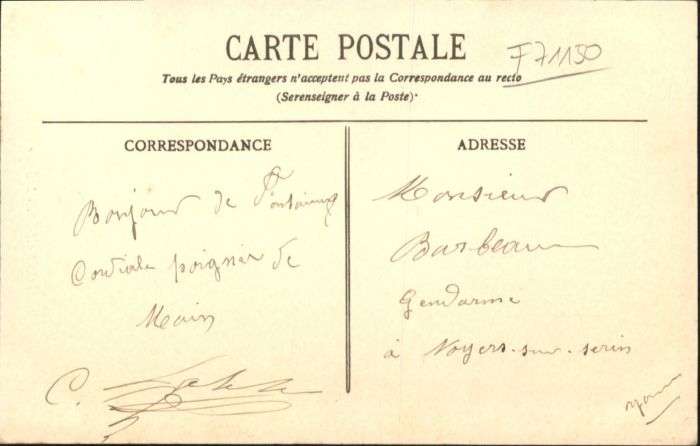 CARTE POSTALE
F71150
Tous les Pays étrangers n'acceptent pas la Correspondance au recto
(Serenseigner à la Poste).
CORRESPONDANCE
Bonjour de
Cordiale poignée de
Main
C.
ADRESSE
Monsieur
Barbeau
Gendarme
à Noyers-sur-serin
yonne